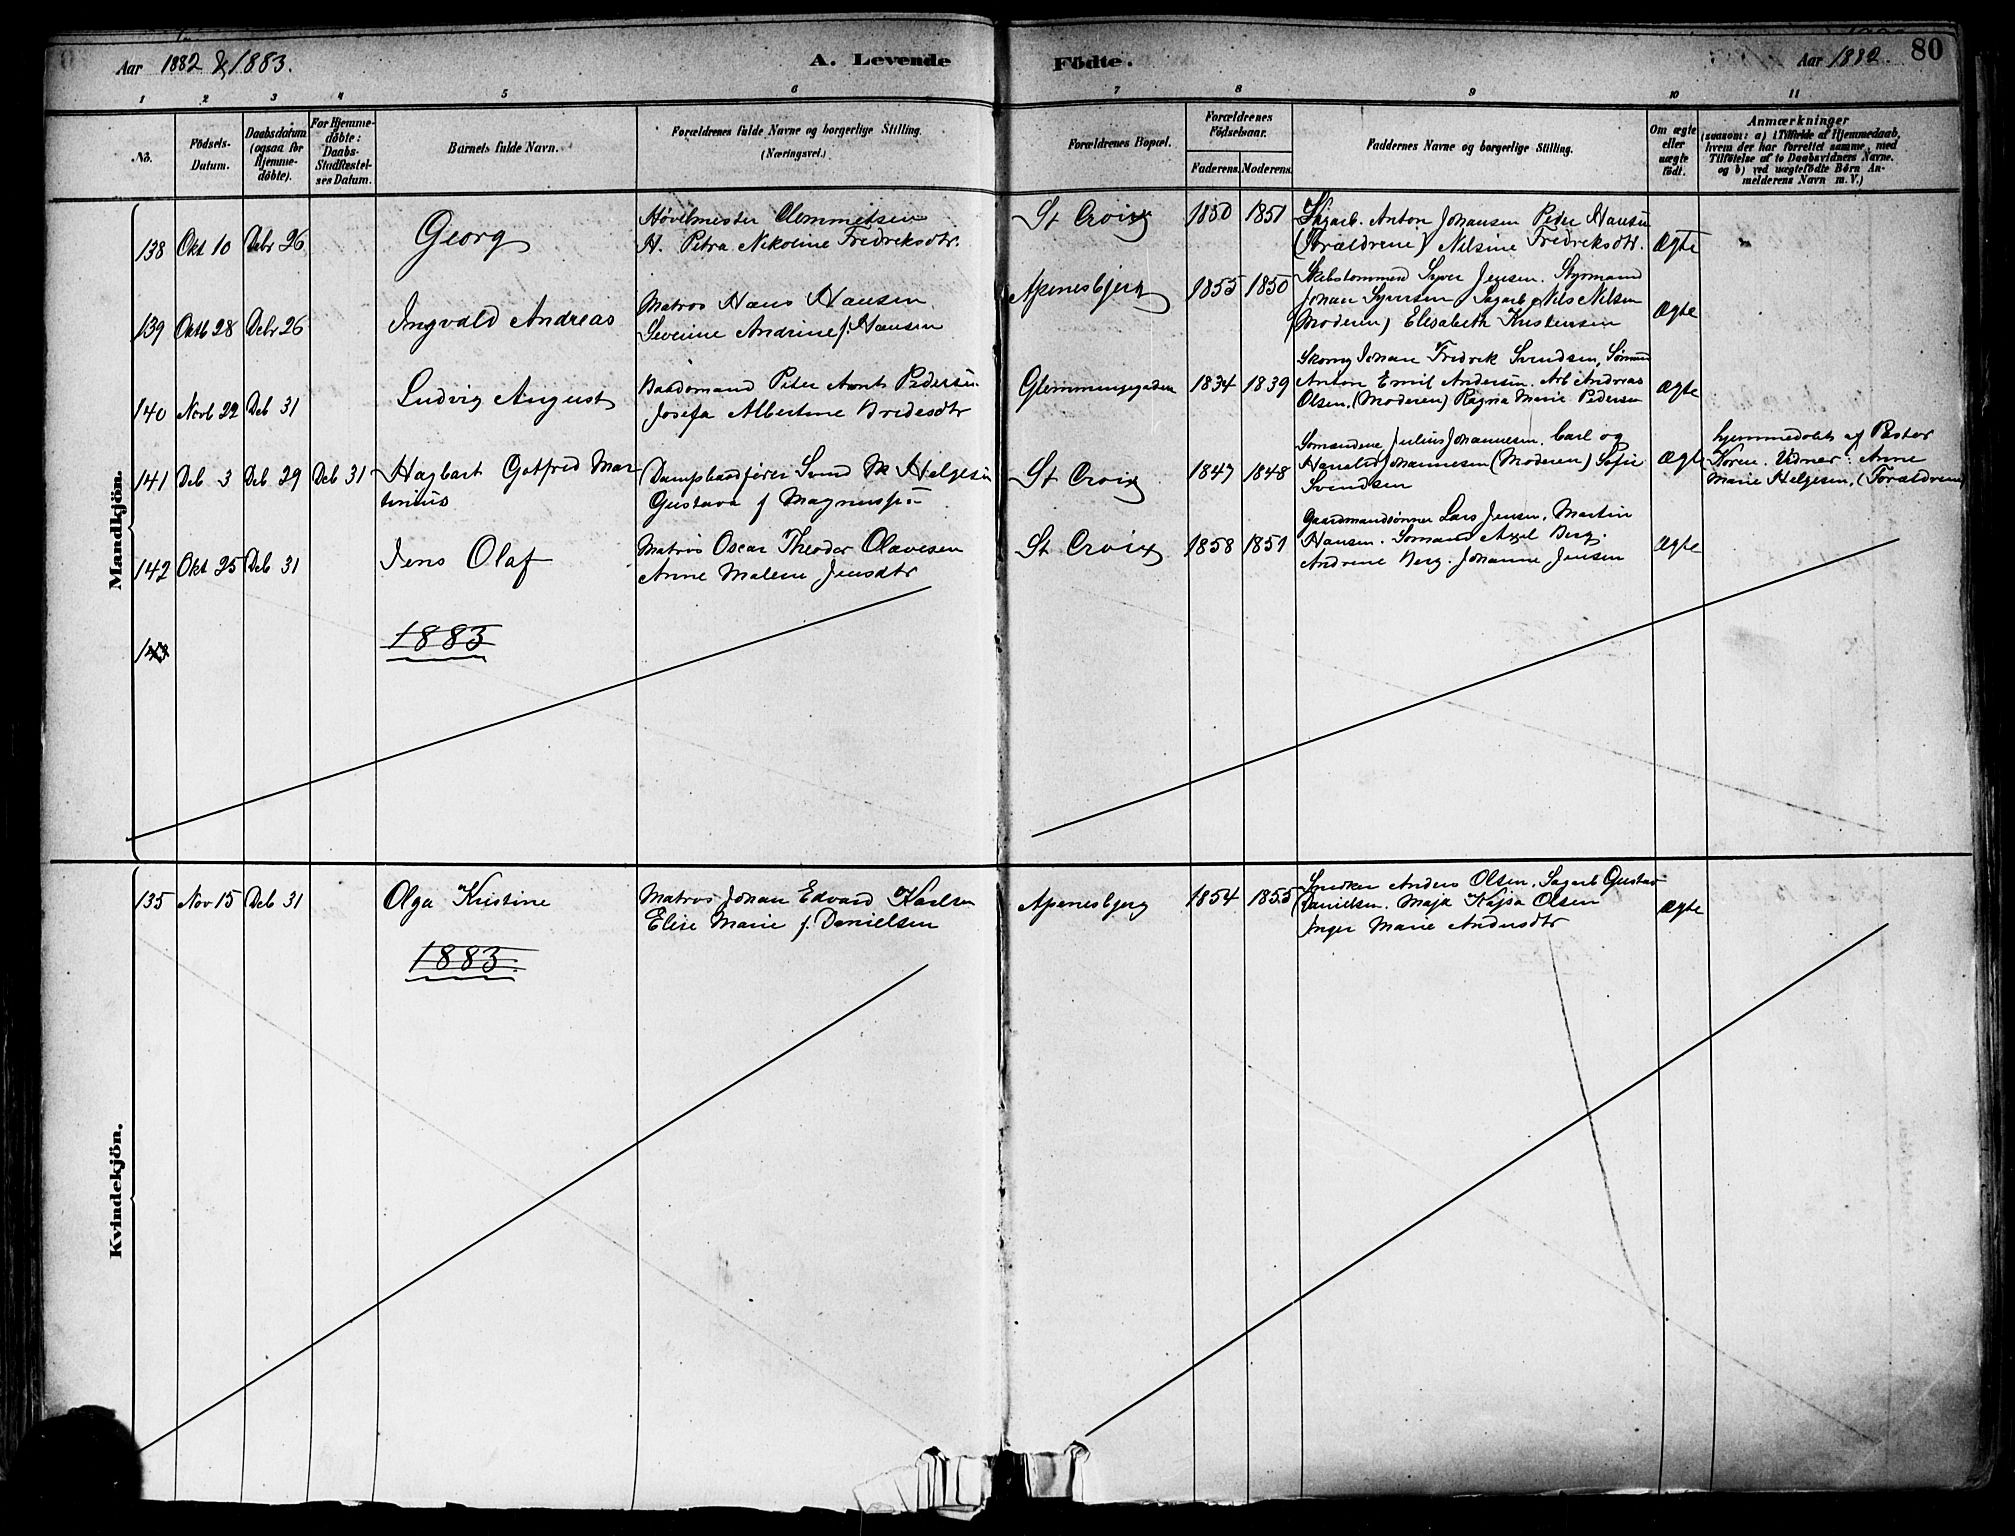 Aar 1882 & 1883. A. Levende Fødte. Aar 1882. 80
1 2 3 4 5 6 7 8 9 10 11
No. Födsels-Datum. Daabsdatum (ogsaa for Hjemme-döbte). For Hjemme-döbte: Daabs-Stadfæstel-ses Datum. Barnets fulde Navn. Forældrenes fulde Navne og borgerlige Stilling. (Næringsvei.) Forældrenes Bopæl. Forældrenes Födselsaar. Faderens. Moderens. Faddernes Navne og borgerlige Stilling. Om ægte eller uægte födt. Anmærkninger (saasom: a) i Tilfælde af Hjemmedaab, hvem der har forrettet samme, med Tilföielse af to Daabsvidners Navne. og b) ved uægtefödte Börn An-melderens Navn m. V.)
Mandkjön.
138 Okt 10 Debr 26 Georg
Høvelmester Clemmetsen
H. Petra Nikoline Fredriksdtr.
St Croix 1850 1851
Sagarb. Anton Johansen Peder Hansen
(Forældrene) Nilsine Fredriksdtr. Ægte
139 Oktb 28 Debr 26 Ingvald Andreas
Matros Hans Hansen
Severine Andrine f. Hansen
Apenesbjerg 1855 1850
Skibstommerm Syver Jensen. Styrmand
Johan Syversen Sagarb Nils Nilsen
(Moderen) Elisabeth Kristensen Ægte
140 Novb 22 Deb 31 Ludvig August
Baadsmand Peter Arnt Pedersen
Josefa Albertine Bridesdtr
Glemmengegaden 1834 1839
Skomg Johan Fredrik Svendsen, Sømand
Anton Emil Andersen. Arb Andreas
Olsen. (Moderen) Ragna Marie Pedersen Ægte
141 Deb 3 Deb 29 Deb 31 Hagbart Gotfred Mar
tinius
(Dampbaadfører Svend M Helgesen
Gustava f Magnusson
St Croix 1847 1848
Sømændene Julius Johannesen. Carl og
Johannesen (Moderen) Sofie
Svendsen Ægte
hjemmedøbt af Pastor
Koren. Vidner: Anne
Marie Helgesen, (Forældrene)
142 Okt 25 Deb 31 Jens Olaf
Matros Oscar Theodor Olavesen
Anne Malene Jensdtr
St Croix 1858 1851
Gaardmandsønner Lars Jensen, Martin
Hansen. Sømand Axel Berg.
Andrine Berg. Johanne Jensen Ægte
143 1883
Kvindekjön.
135 Nov 15 Deb 31 Olga Kristine
Matros Johan Edvard Karlsen
Elise Marie f. Danielsen
Apenesbjerg 1854 1855
Snedker Anders Olsen, Sagarb Gustav
Danielsen. Maja Kajsa Olsen
Inger Marie Andersdtr Ægte
1883.